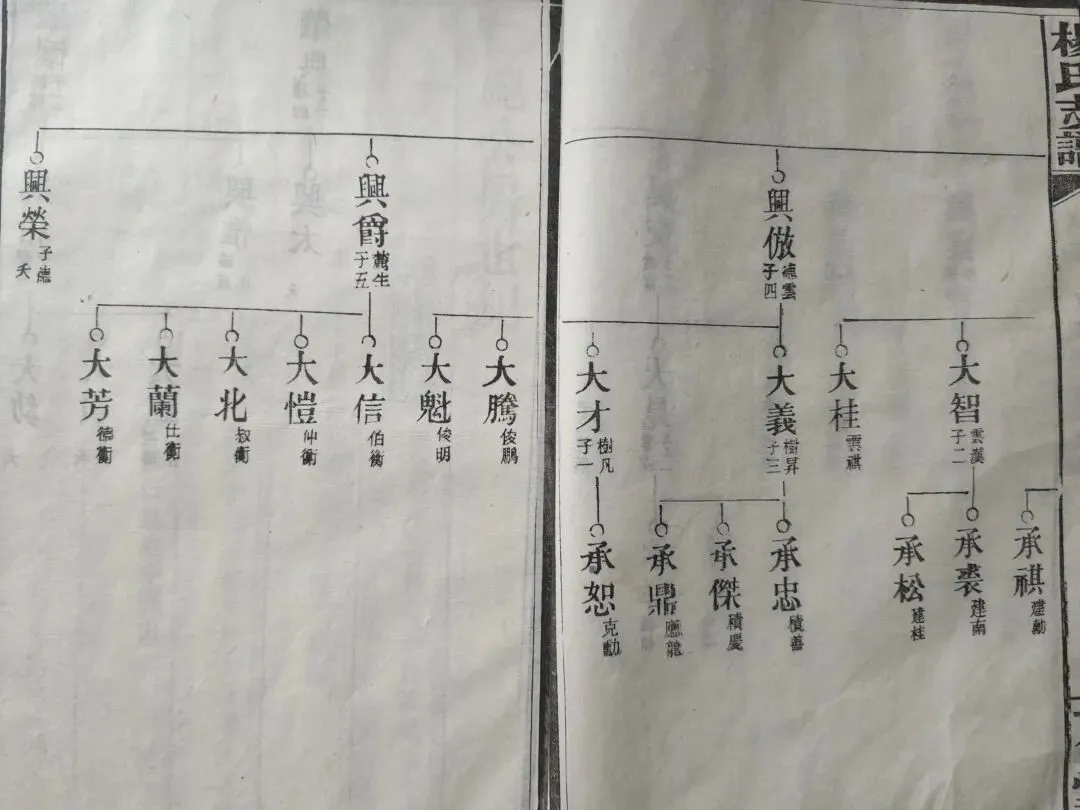 楊氏支譜
興倣
德雲
子四
大智
雲漢
子二
大桂
雲祺
大義
樹昇
子三
大才
樹凡
子一
承祺
建勳
承裘
建南
承松
建桂
承忠
積善
承傑
積慶
承鼎
應龍
承恕
克勳
興爵
子五
興榮
子德
夭
大騰
俊鵬
大魁
俊明
大信
伯衡
大愷
仲衡
大北
叔衡
大蘭
仕衡
大芳
德衡